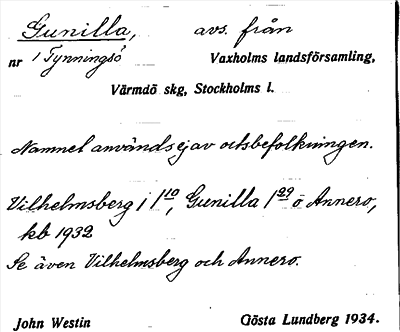 Gunilla, avs. från
nr 1 Tynningsö Vaxholms landsförsamling,
Värmdö skg, Stockholms l.
Namnet användes ej av ortsbefolkningen.
Vilhelmsberg i 1 10, Gunilla 1 29 ö Annero,
kb 1932
Se även Vilhelmsberg och Annero.
John Westin Gösta Lundberg 1934.